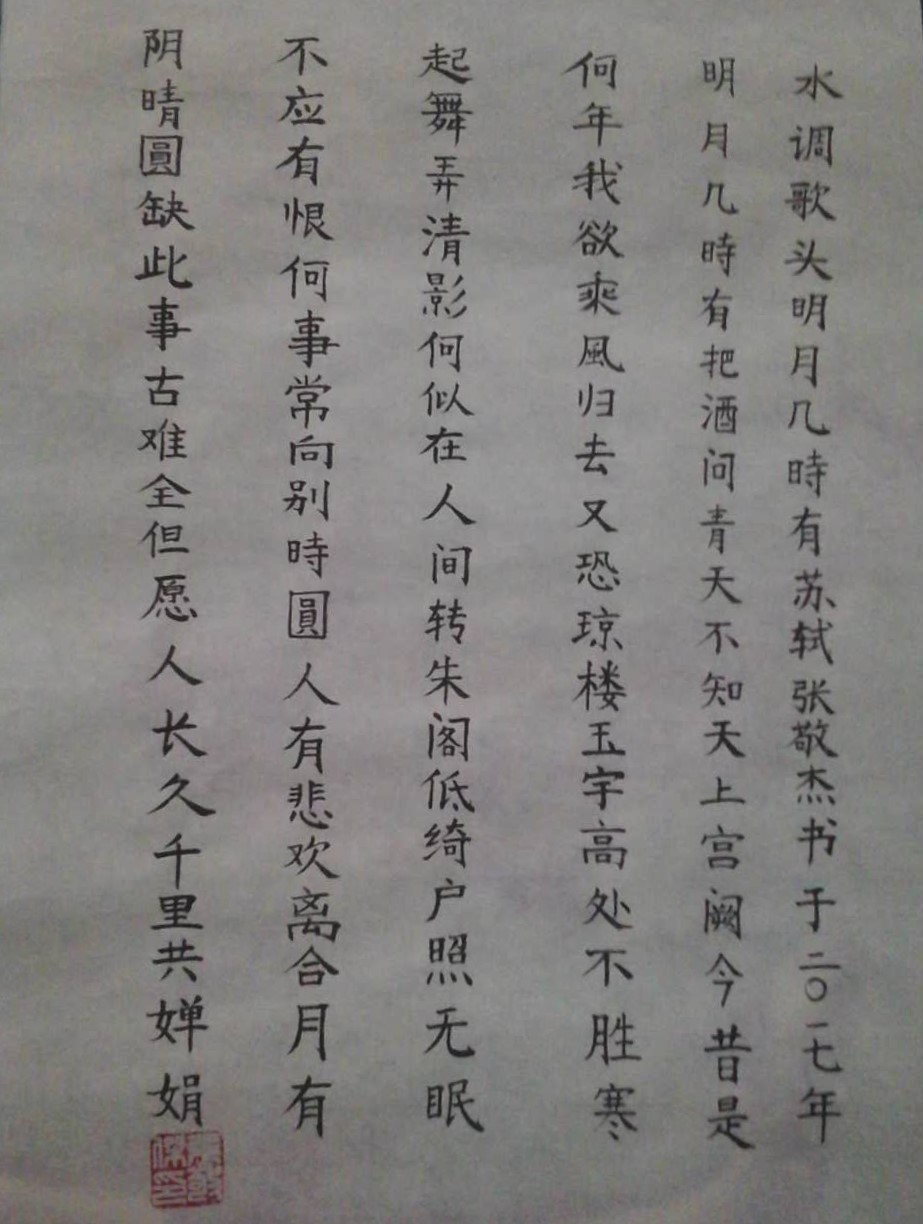 水调歌头明月几時有苏轼张敬杰书于二〇一七年
明月几時有把酒问青天不知天上宫阙今昔是
何年我欲乘風归去又恐琼楼玉宇高处不胜寒
起舞弄清影何似在人间转朱阁低绮户照无眠
不应有恨何事常向别時圓人有悲欢离合月有
阴晴圓缺此事古难全但愿人长久千里共婵娟